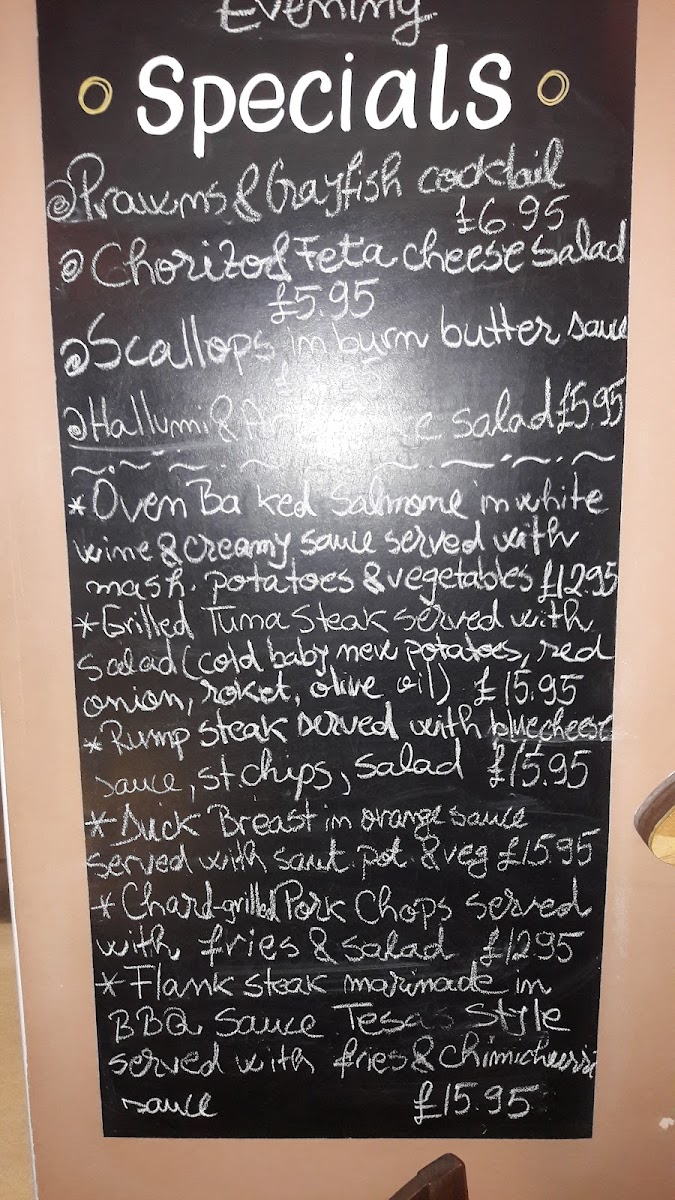 Evening
Specials
@Prawns & Grayfish cocktail
£6.95
@ Chorizo & Feta cheese salad
£5.95
@Scallops in burn butter sauce
@Hallumi & salad £5.95
*Oven Baked Salmone in white
wine & creamy sauce served with
mash. potatoes & vegetables £12.95
*Grilled Tuma Steak served with
Salad (cold baby new potatoes, red
onion, roket, olive oil) £15.95
*Rump steak served with bluecheese
sauce, st.chips, salad £15.95
*Duck Breast in orange sauce
served with saut. pot & veg £15.95
*Chard-grilled Pork Chops served
with fries & salad £12.95
*Flank steak marinade in
BBQ Sauce Tesas Style
served with fries & chimichurri
sauce £15.95